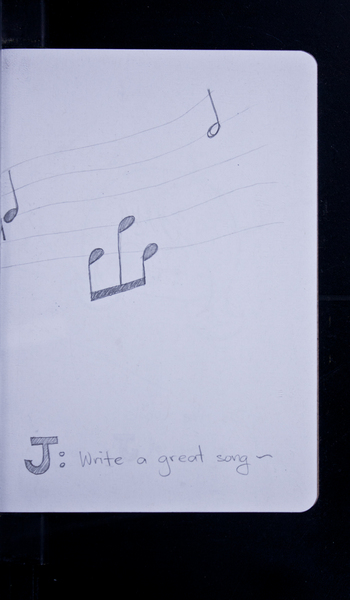 J: Write a great song ~